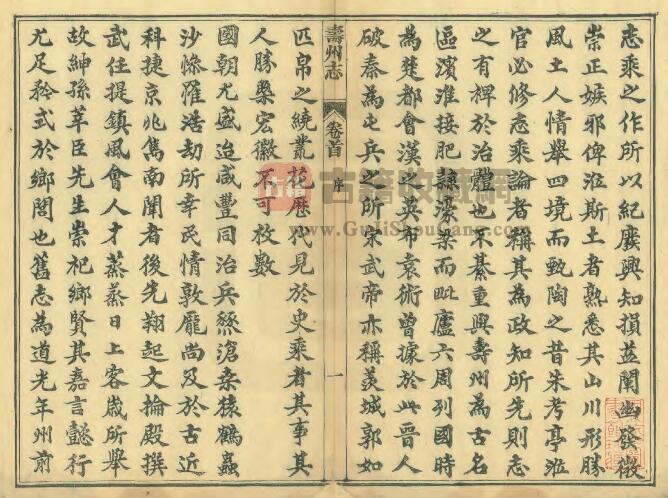 志乘之作所以紀廢興知損益闡幽發微
崇正嫉邪俾涖斯土者熟悉其山川形勝
風土人情舉四境而甄陶之昔朱考亭涖
官必修志乘論者稱其為政知所先則志
之有裨於治體也不綦重與壽州為古名
區濱淮接肥隸濠梁而毗廬六周列國時
為楚都會漢之英布袁術曾據於此晉人
破秦為屯兵之所宋武帝亦稱羨城郭如
壽州志
卷首
序
一
匹帛之繞叢花歷代見於史乘者其事其
人勝槩宏徽不可枚數
國朝尤盛迨咸豐同治兵燹滄桒猿鶴蟲
沙慘罹浩劫所幸民情敦龐尚及於古近
科捷京兆雋南闈者後先翔起文掄殿撰
武任提鎮風會人才蒸蒸日上客歲所舉
故紳孫莘臣先生崇祀鄉賢其嘉言懿行
尤足矜式於鄉閭也舊志為道光年州前
古籍收藏網
www.GujiShouCang.com